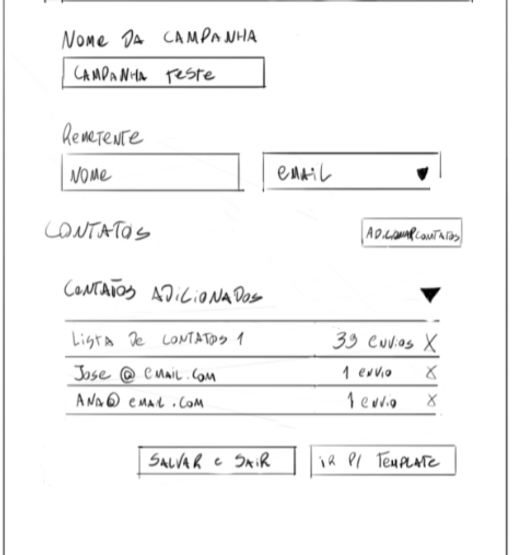 Nome DA CAMPANHA
CAMPANHA Teste
Remetente
Nome
email
CONTATOS
ADICIONAR CONTATOS
CONTATOS ADICIONADOS
Lista De CONTATOS 1 39 envios X
Jose @ email.com 1 envio X
ANA@ email.com 1 envio X
SALVAR e SAIR
iR P/ TEMPLATE